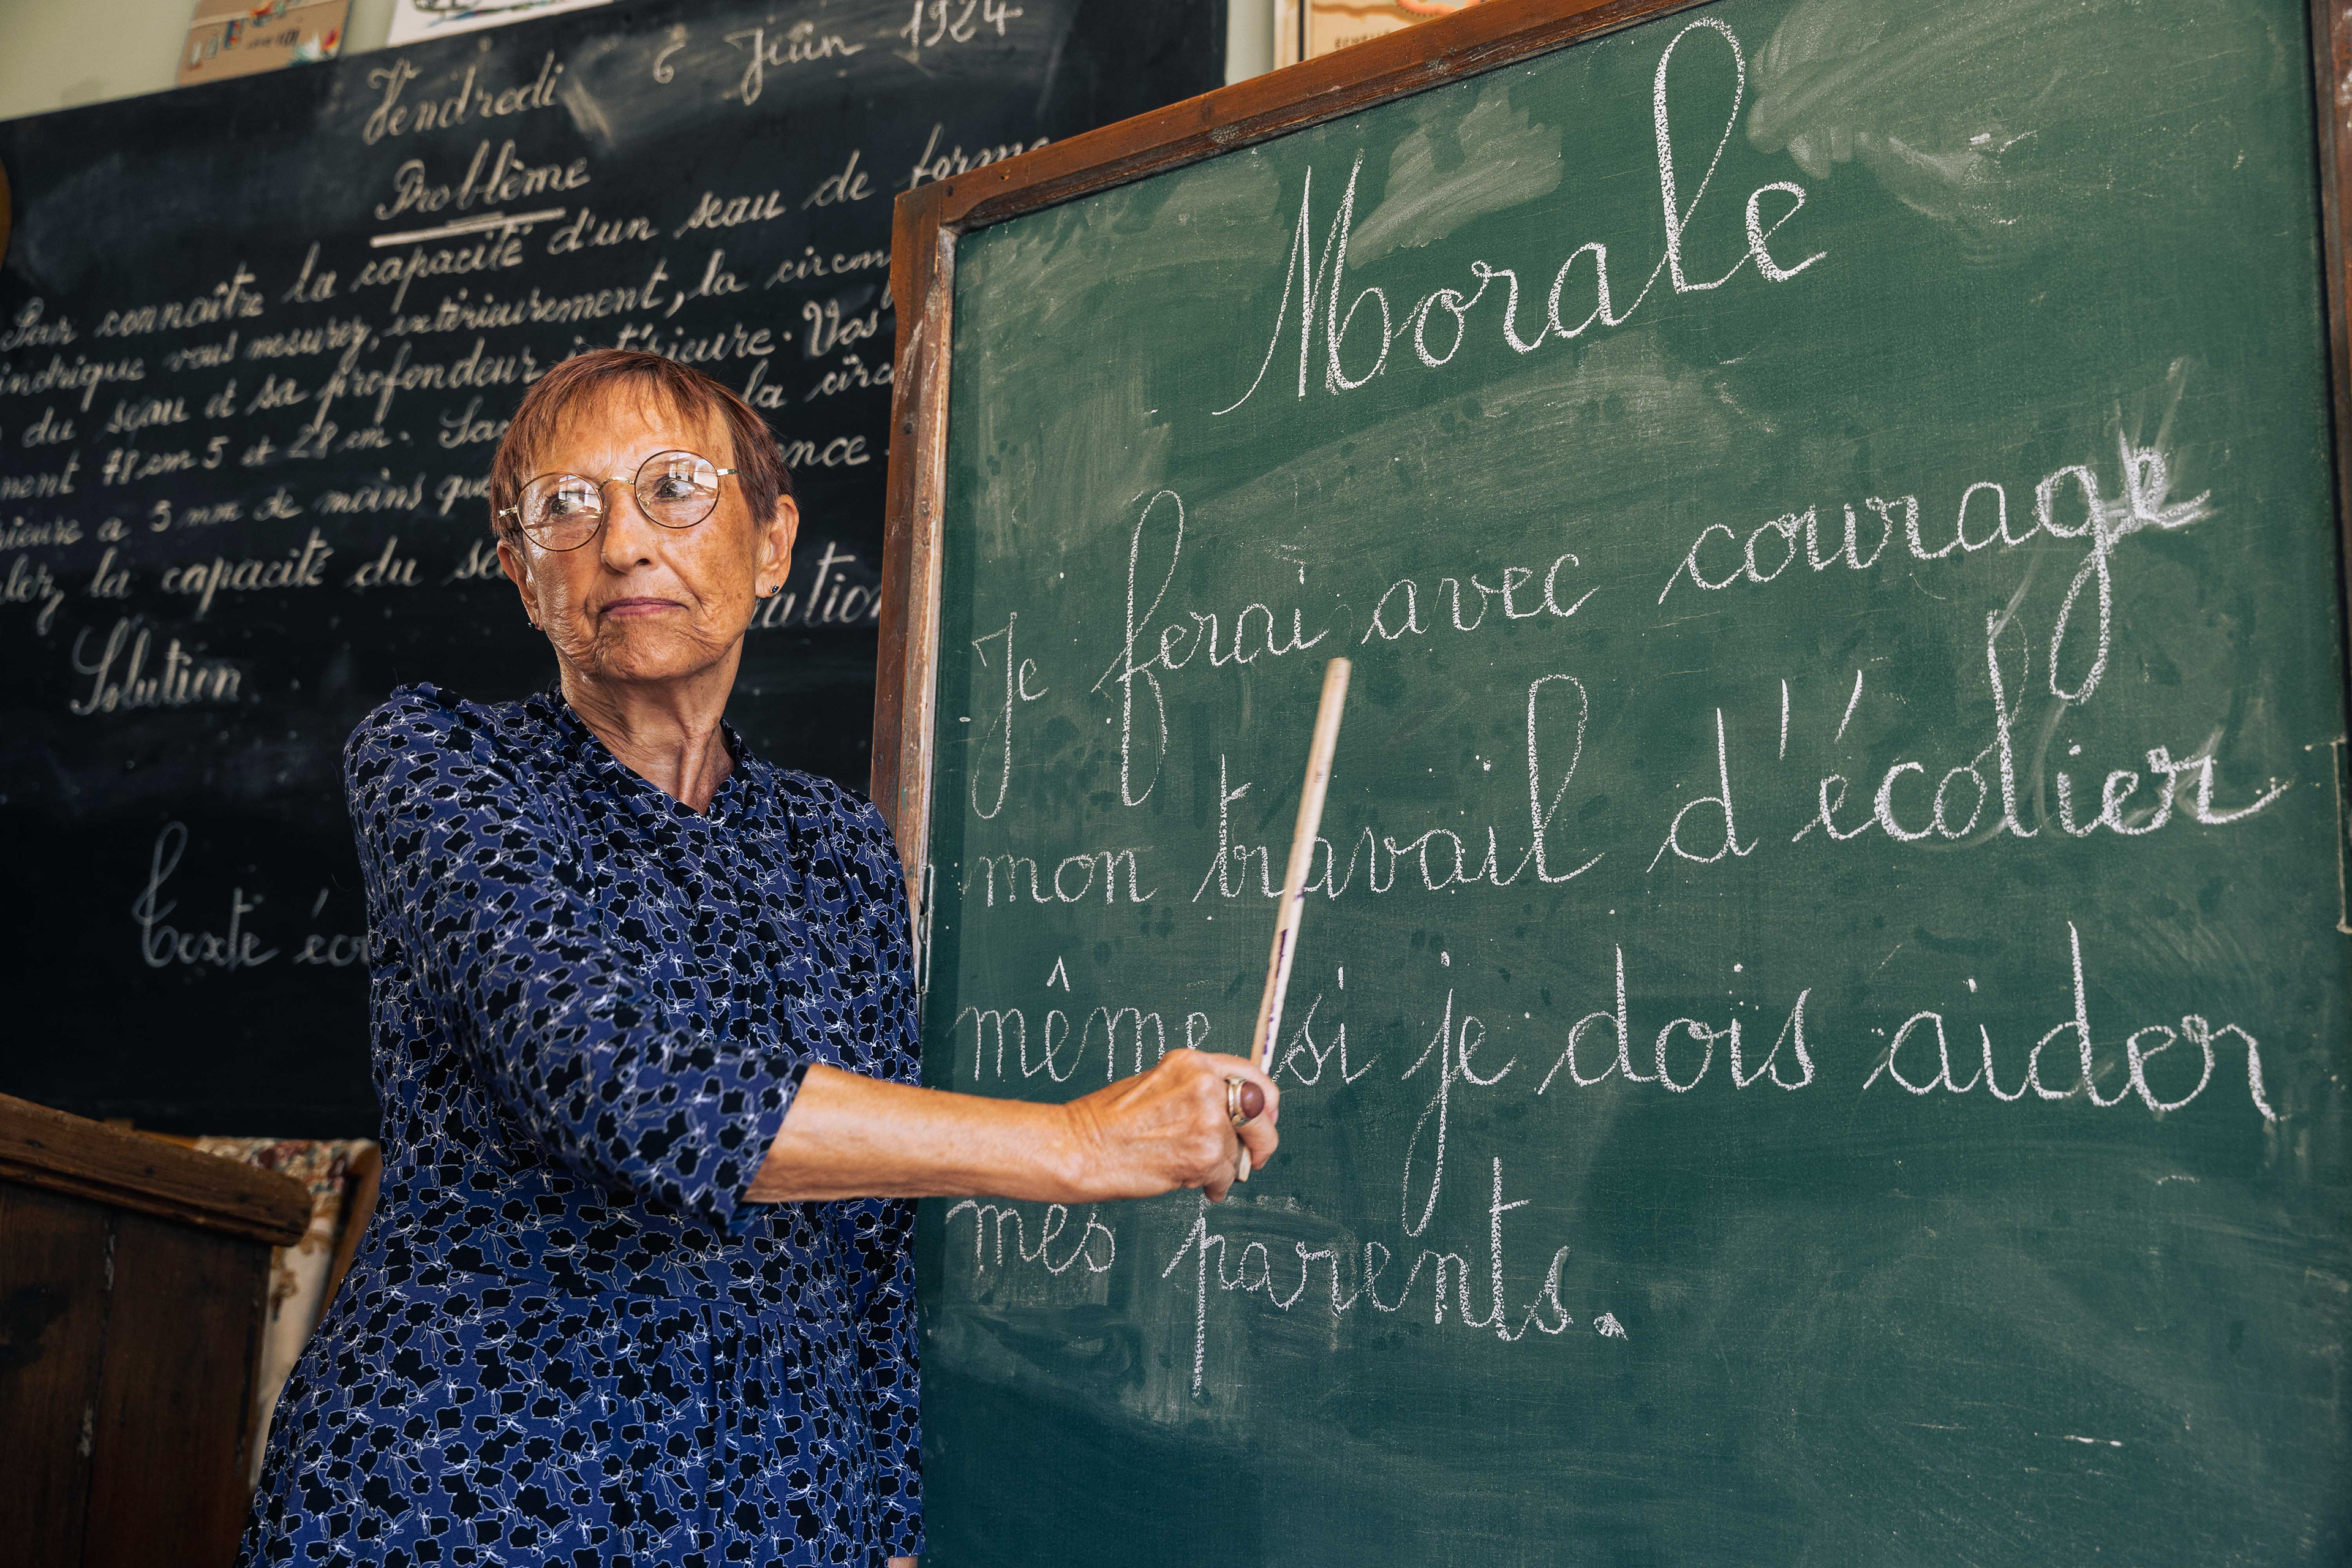 Vendredi 6 Juin 1924
Problème
Pour connaître la capacité d'un seau de forme
indrique vous mesurez, extérieurement, la circon
du seau et sa profondeur intérieure. Vos
ment 78 cm 5 et 28 cm. Sa la circ
rieure a 5 mm de moins que ence
ulez la capacité du se
Solution ration
Texte éc
Morale
Je ferai avec courage
mon travail d'écolier
même si je dois aider
mes parents.